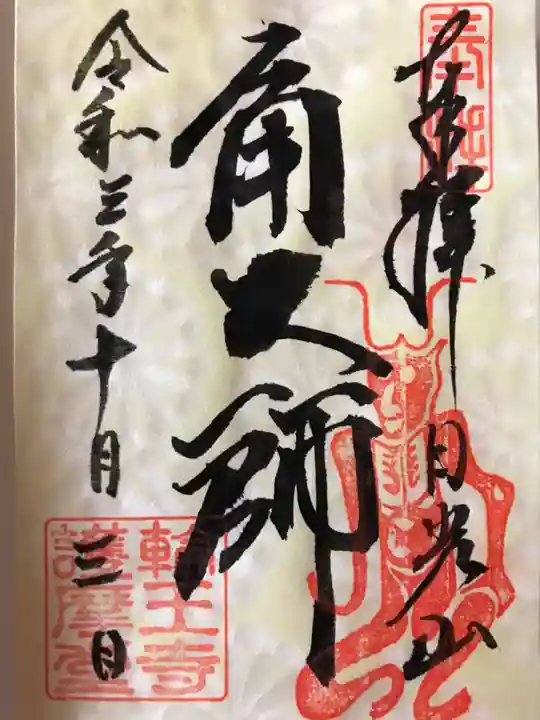 奉拝 日光山
角大師
令和三年十月三日
輪王寺
護摩堂